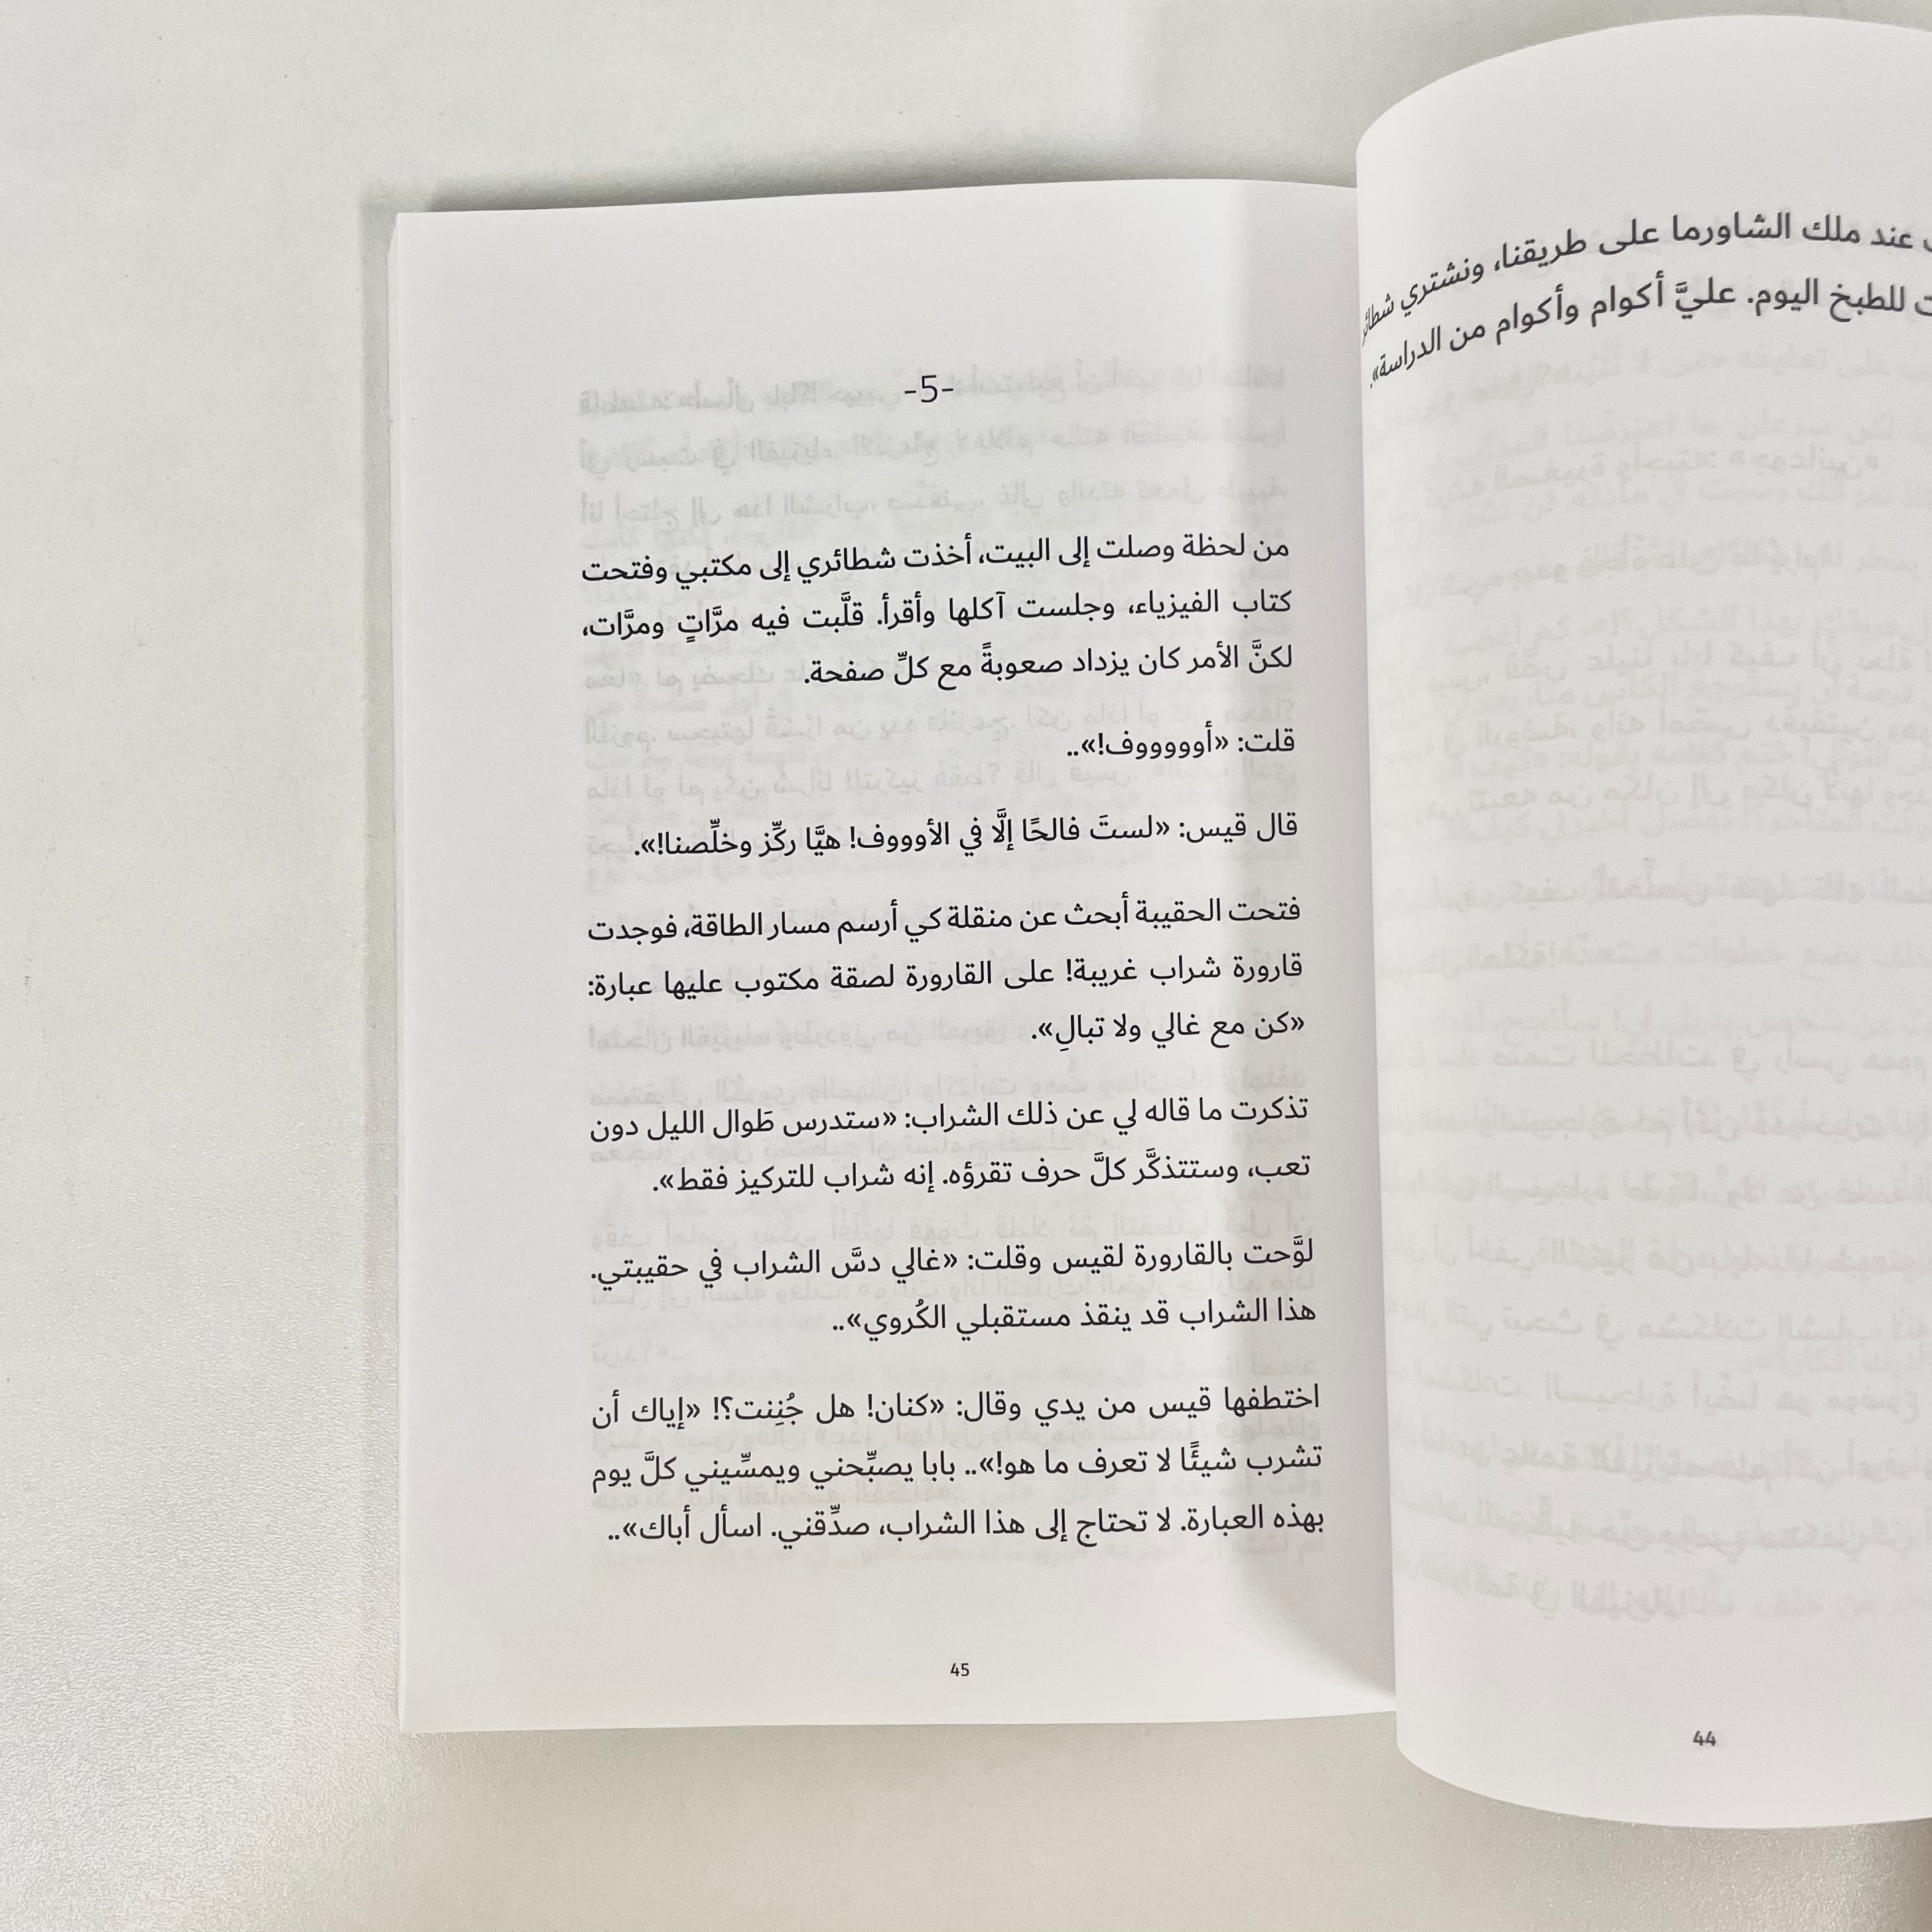 عند ملك الشاورما على طريقنا، ونشتري
للطبخ اليوم. عليَّ أكوام وأكوام من الدراسة».
44
-5-
من لحظة وصلت إلى البيت، أخذت شطائري إلى مكتبي وفتحت
كتاب الفيزياء، وجلست آكلها وأقرأ. قلَّبت فيه مرَّاتٍ ومرَّات،
لكنَّ الأمر كان يزداد صعوبةً مع كلِّ صفحة.
قلت: «أووووووف!»..
قال قيس: «لستَ فالحًا إلَّا في الأوووف! هيَّا ركِّز وخلِّصنا!».
فتحت الحقيبة أبحث عن منقلة كي أرسم مسار الطاقة، فوجدت
قارورة شراب غريبة! على القارورة لصقة مكتوب عليها عبارة:
«كن مع غالي ولا تبالِ».
تذكرت ما قاله لي عن ذلك الشراب: «ستدرس طَوال الليل دون
تعب، وستتذكَّر كلَّ حرف تقرؤه. إنه شراب للتركيز فقط».
لوَّحت بالقارورة لقيس وقلت: «غالي دسَّ الشراب في حقيبتي.
هذا الشراب قد ينقذ مستقبلي الكُروي»..
اختطفها قيس من يدي وقال: «كنان! هل جُنِنت؟! «إياك أن
تشرب شيئًا لا تعرف ما هو!».. بابا يصبِّحني ويمسِّيني كلَّ يوم
بهذه العبارة. لا تحتاج إلى هذا الشراب، صدِّقني. اسأل أباك»..
45